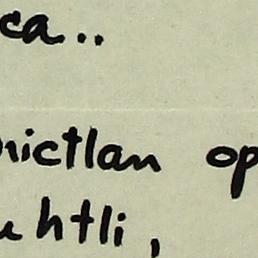 ca..
mictlan op
uhtli,